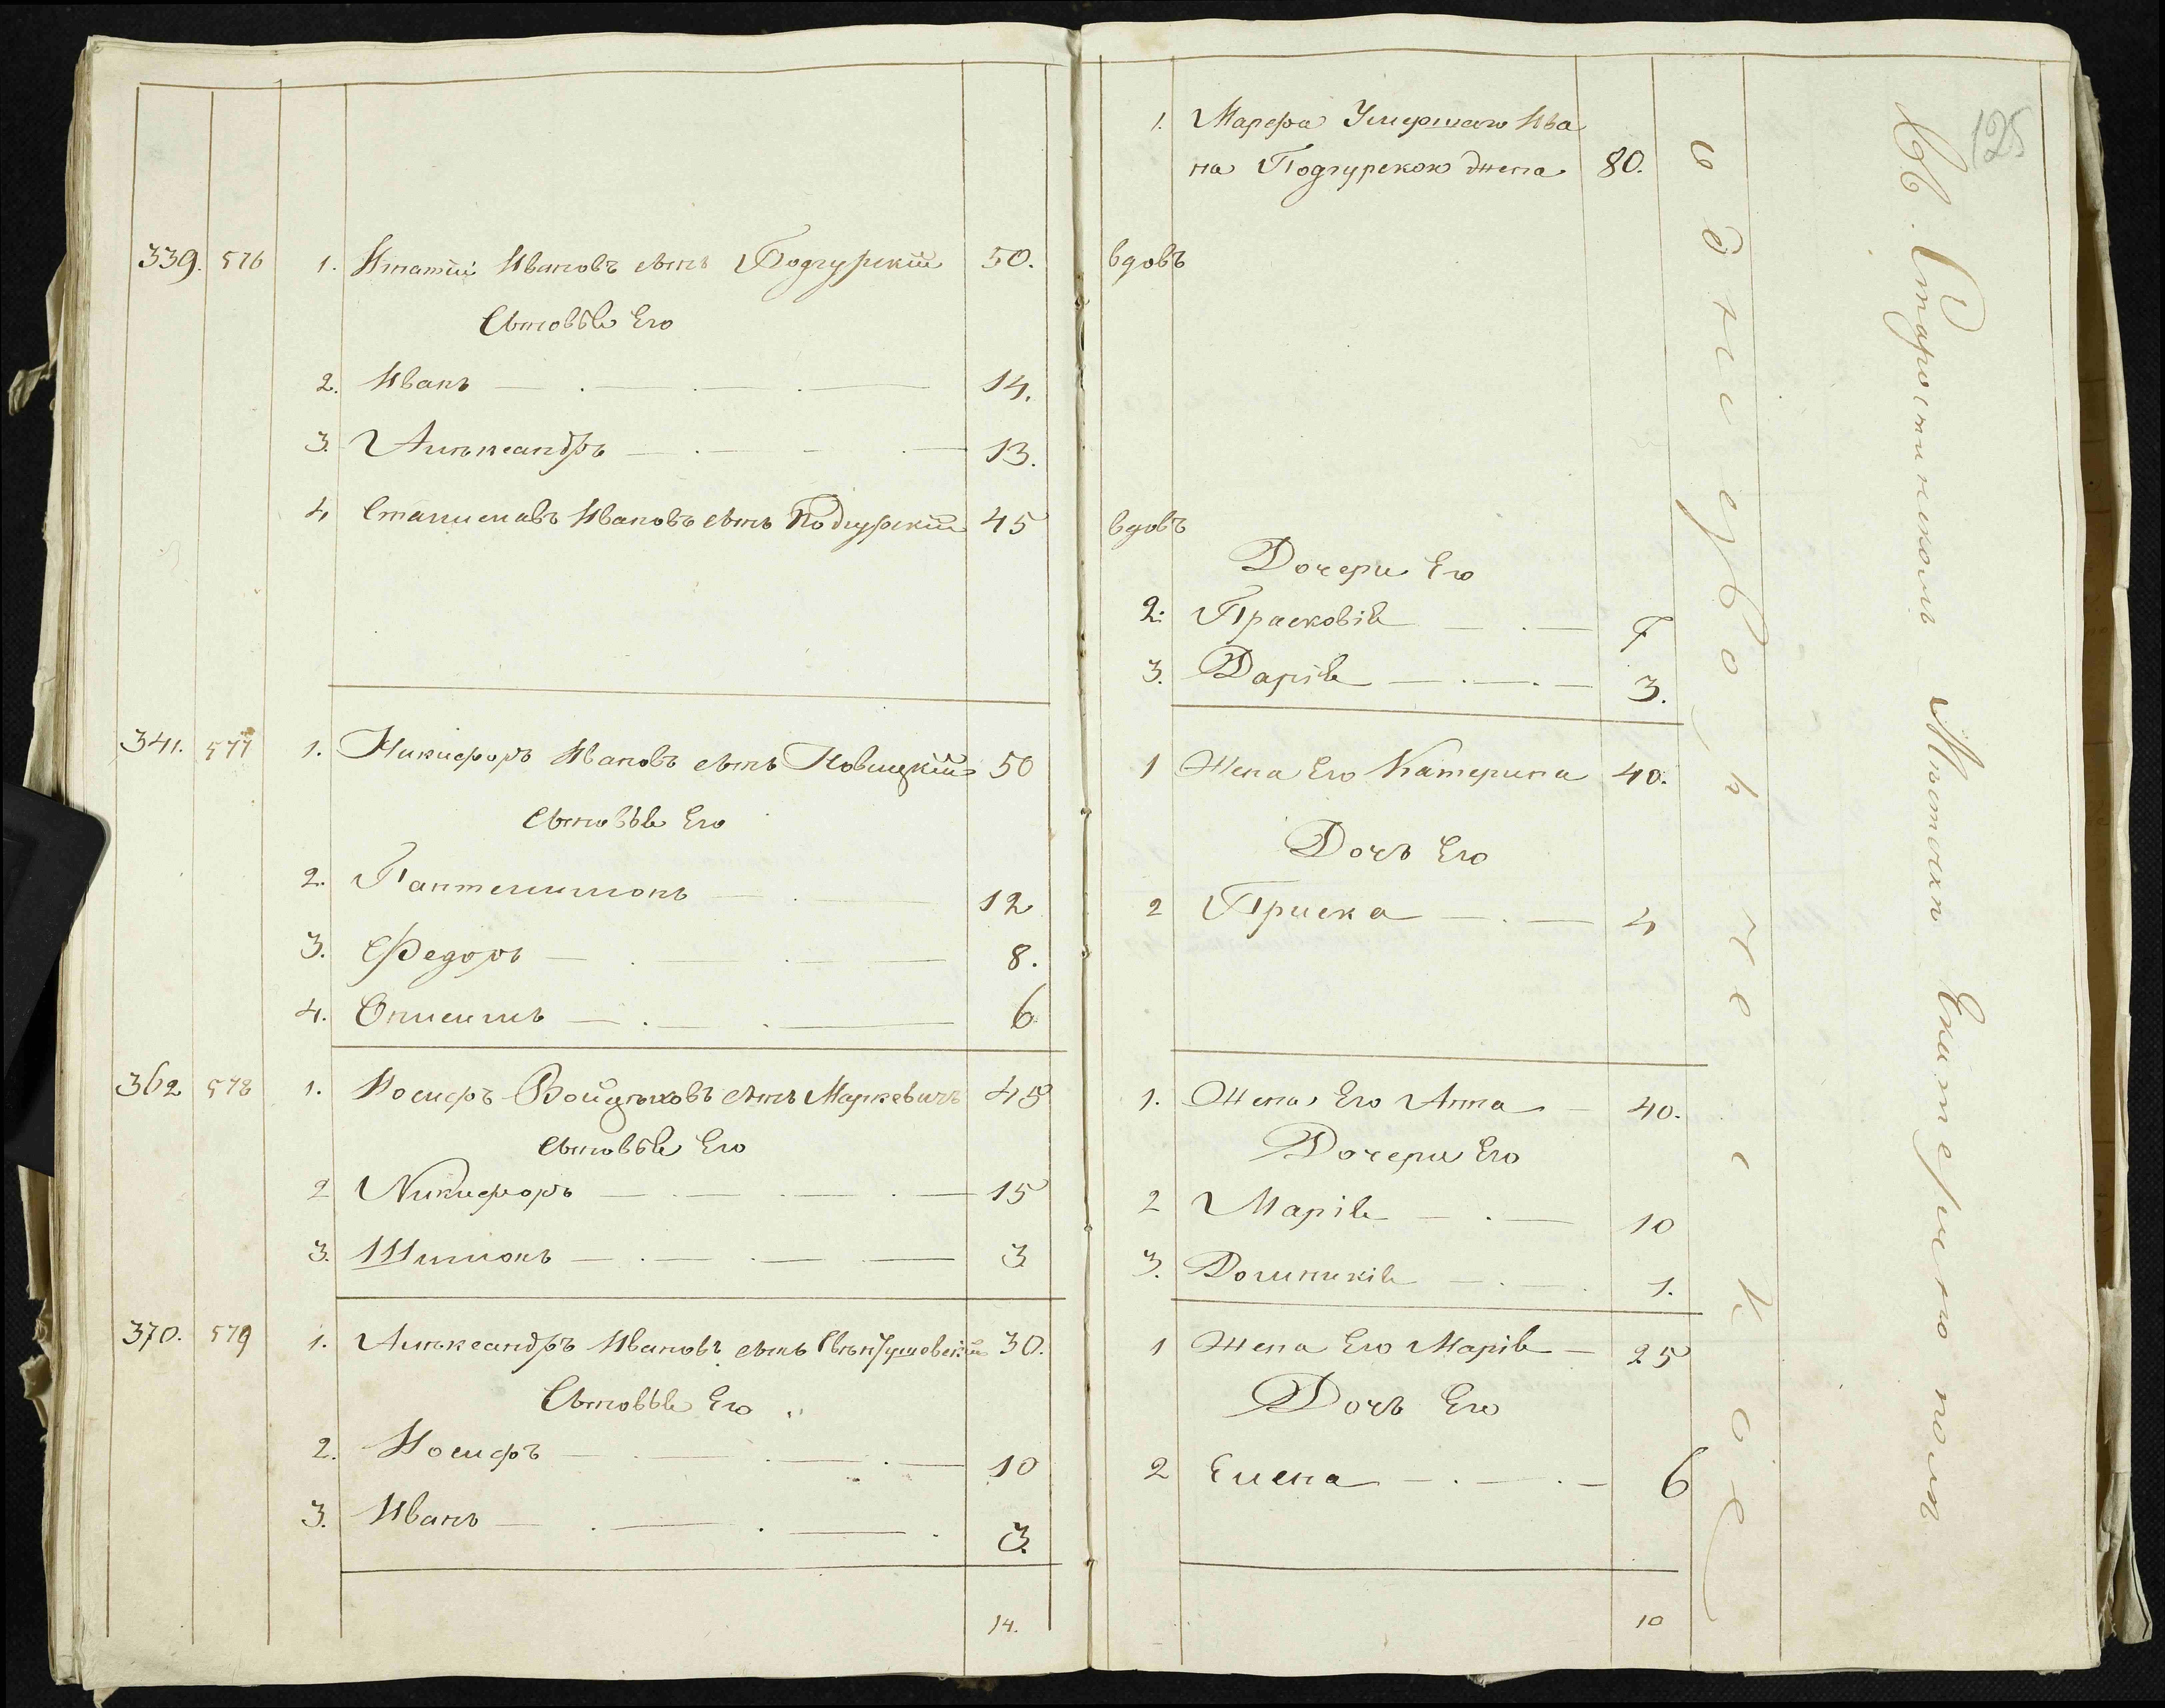 339. 576 1. Игнатій Ивановъ сынъ Подгурскій 50.
Сыновья Его
2. Иванъ 14.
3. Алѣксандръ 13.
4 Станиславъ Ивановъ сынъ Подгурскій 45
341. 577 1. Никифоръ Ивановъ сынъ Новицкій 50
Сыновья Его
2. Пантелимонъ 12
3. Федоръ 8.
4. Онисимъ 6
362 578 1. Иосифъ Войцѣховъ сынъ Маркевичъ 45
Сыновья Его
2 Никифоръ 15
3. Шимонъ 3
370. 579 1. Алѣксандръ Ивановъ сынъ 30.
Сыновья Его
2. Иосифъ 10
3. Иванъ 3.
14.
125
1. Марфа Умершаго Ива
на Подгурского жена 80.
вдовъ
вдовъ
Дочери Его
2. Прасковія 7
3. Дарія 3.
1 Жена Его Катерина 40.
Дочь Его
2 Приска 4
1. Жена Его Анна 40.
Дочери Его
2 Марія 10
3. Доминикія 1.
1 Жена Его Марія 25
Дочь Его
2 Елена 6
10
одного
Въ Старостинскомъ Мѣстѣчкѣ